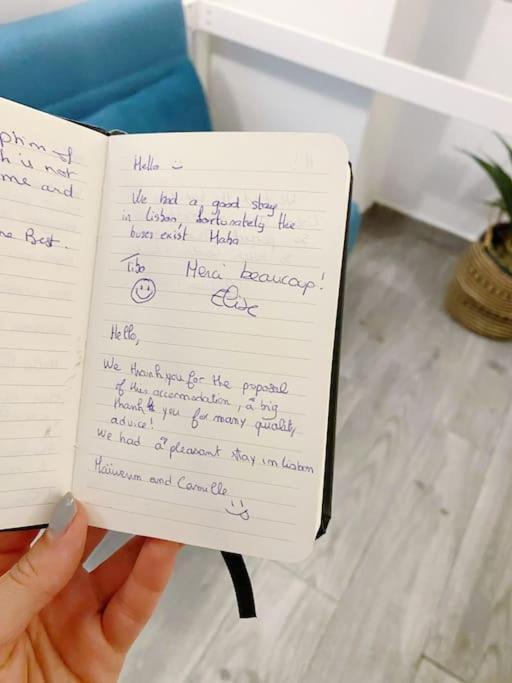 of
h is not
me and
Best.
Hello
We had a good stay
in Lisbon, fortunately the
buses exist Haha
Tibo Merci beaucoup!
Elise
Hello,
We thank you for the proposal
of this accomodation, a big
thank you for many quality
advice!
We had a pleasant stay in Lisbon
and Camille